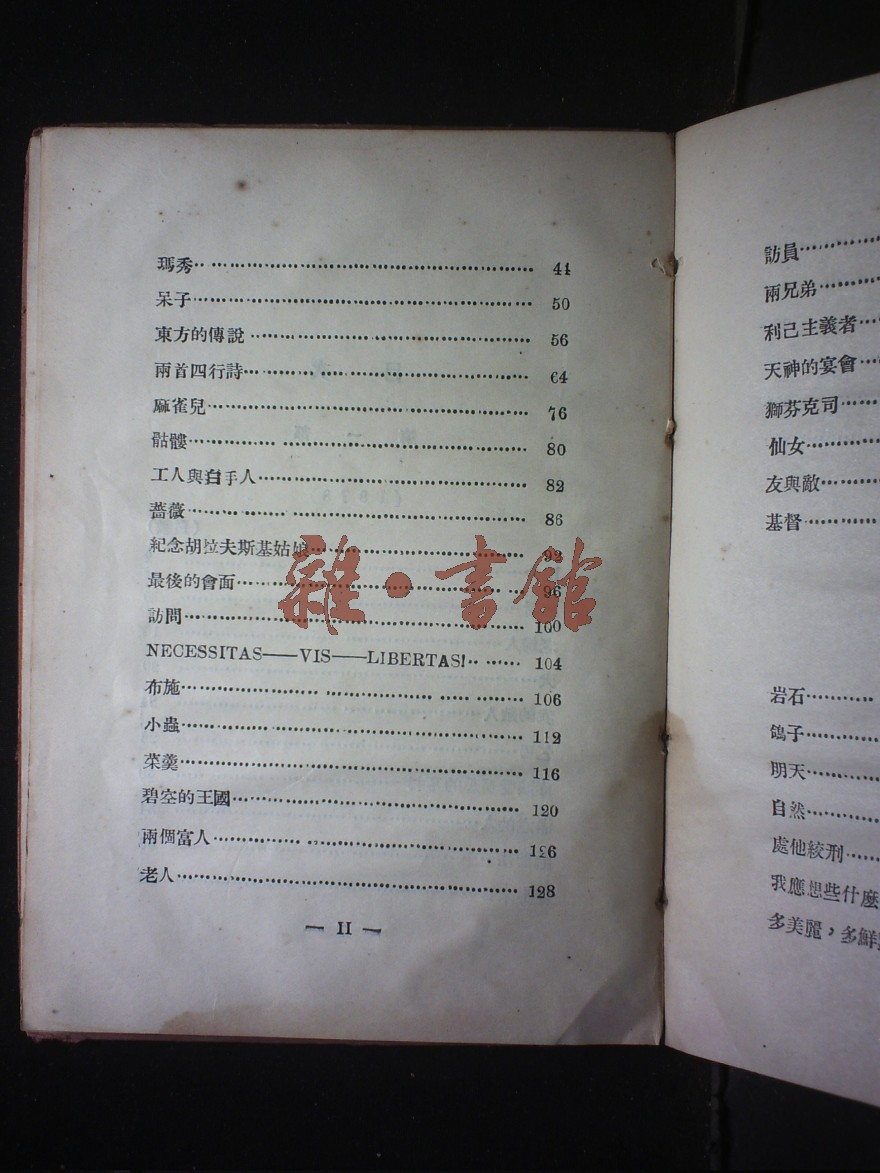 瑪秀·················· 44
呆子·················· 50
東方的傳說·················· 56
兩首四行詩·················· 64
麻雀兒·················· 76
骷髏·················· 80
工人與白手人·················· 82
薔薇·················· 86
紀念胡拉夫斯基姑娘·················· 92
最後的會面·················· 96
訪問·················· 100
NECESSITAS——VIS——LIBERTAS!········ 104
布施·················· 106
小蟲·················· 112
菜羹·················· 116
碧空的王國·················· 120
兩個富人·················· 126
老人·················· 128
— II —
雜·書館
訪員··········
兩兄弟··········
利己主義者·····
天神的宴會·····
獅芬克司·····
仙女··········
友與敵··········
基督··········
岩石··········
鴿子··········
明天··········
自然··········
處他絞刑·····
我應想些什麼
多美麗，多鮮